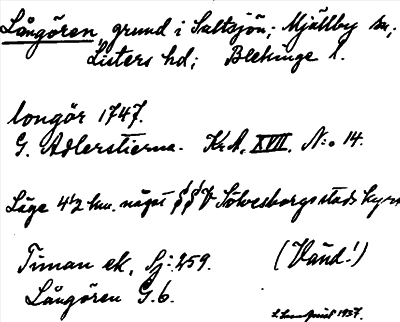 Långören, grund i Saltsjön; Mjällby sn;
Listers hd; Blekinge l.
longör 1747.
G. Adlerstierna. Kr.A. XVII. N:o 14.
Läge 4 1/2 km. något Sölvesborgs stads kyrk
Timan ek. Sj: 259. (Vänd!)
Långören G.6.
1937.